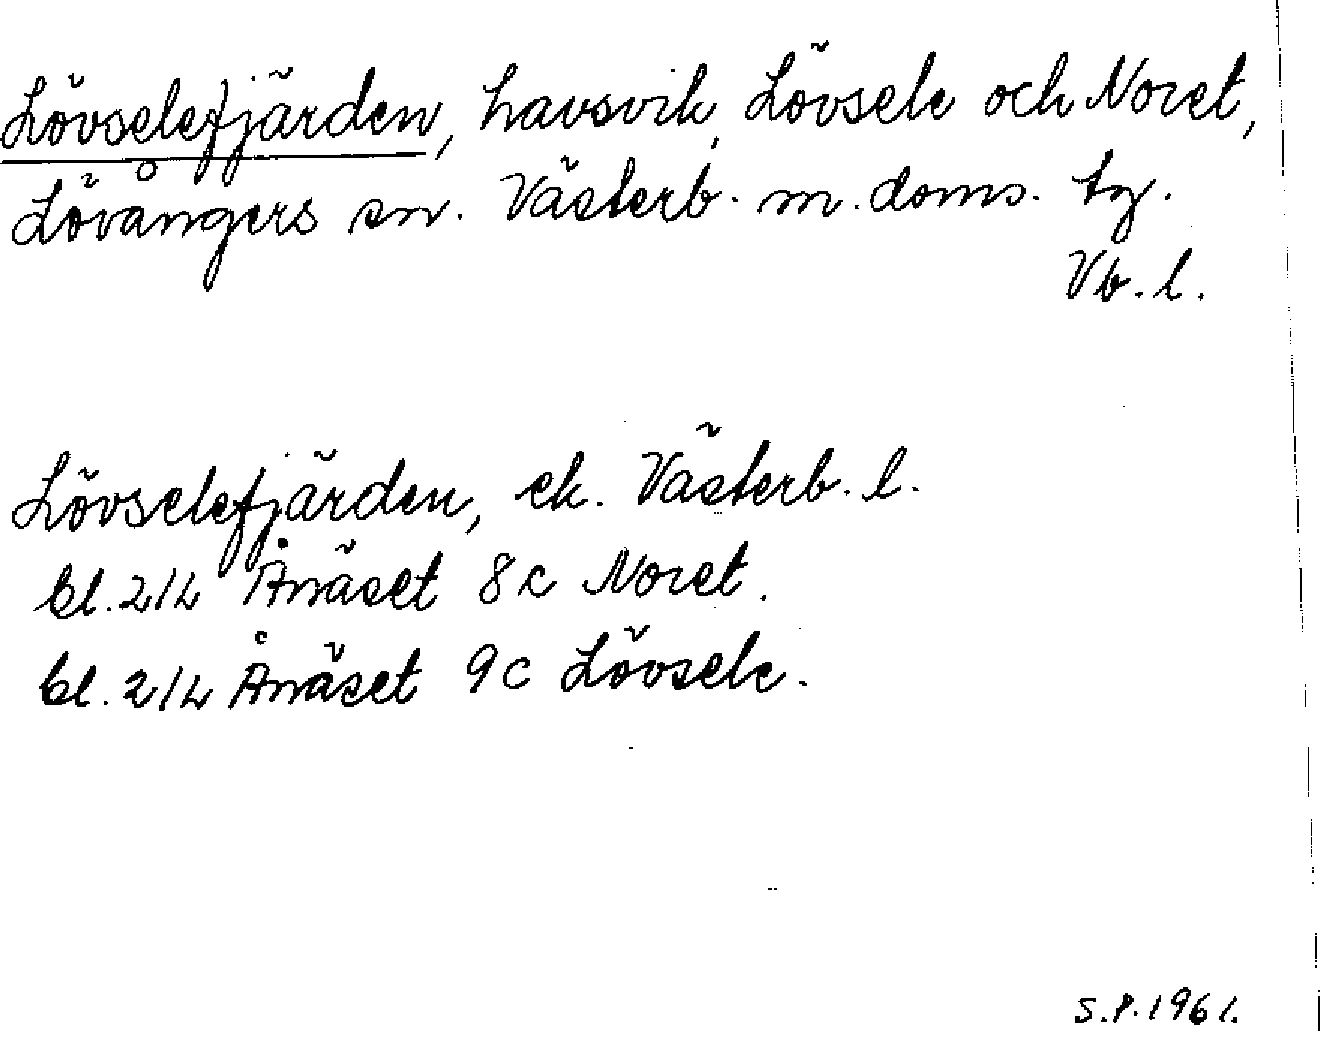 Lövselefjärden, havsvik, Lövsele och Noret,
Lövångers sn. Västerb. m. doms. tg.
Vb. l.
Lövselefjärden, ek. Västerb. l.
bl. 21L Ånäset 8c Noret.
bl. 21L Ånäset 9c Lövsele.
S.P. 1961.